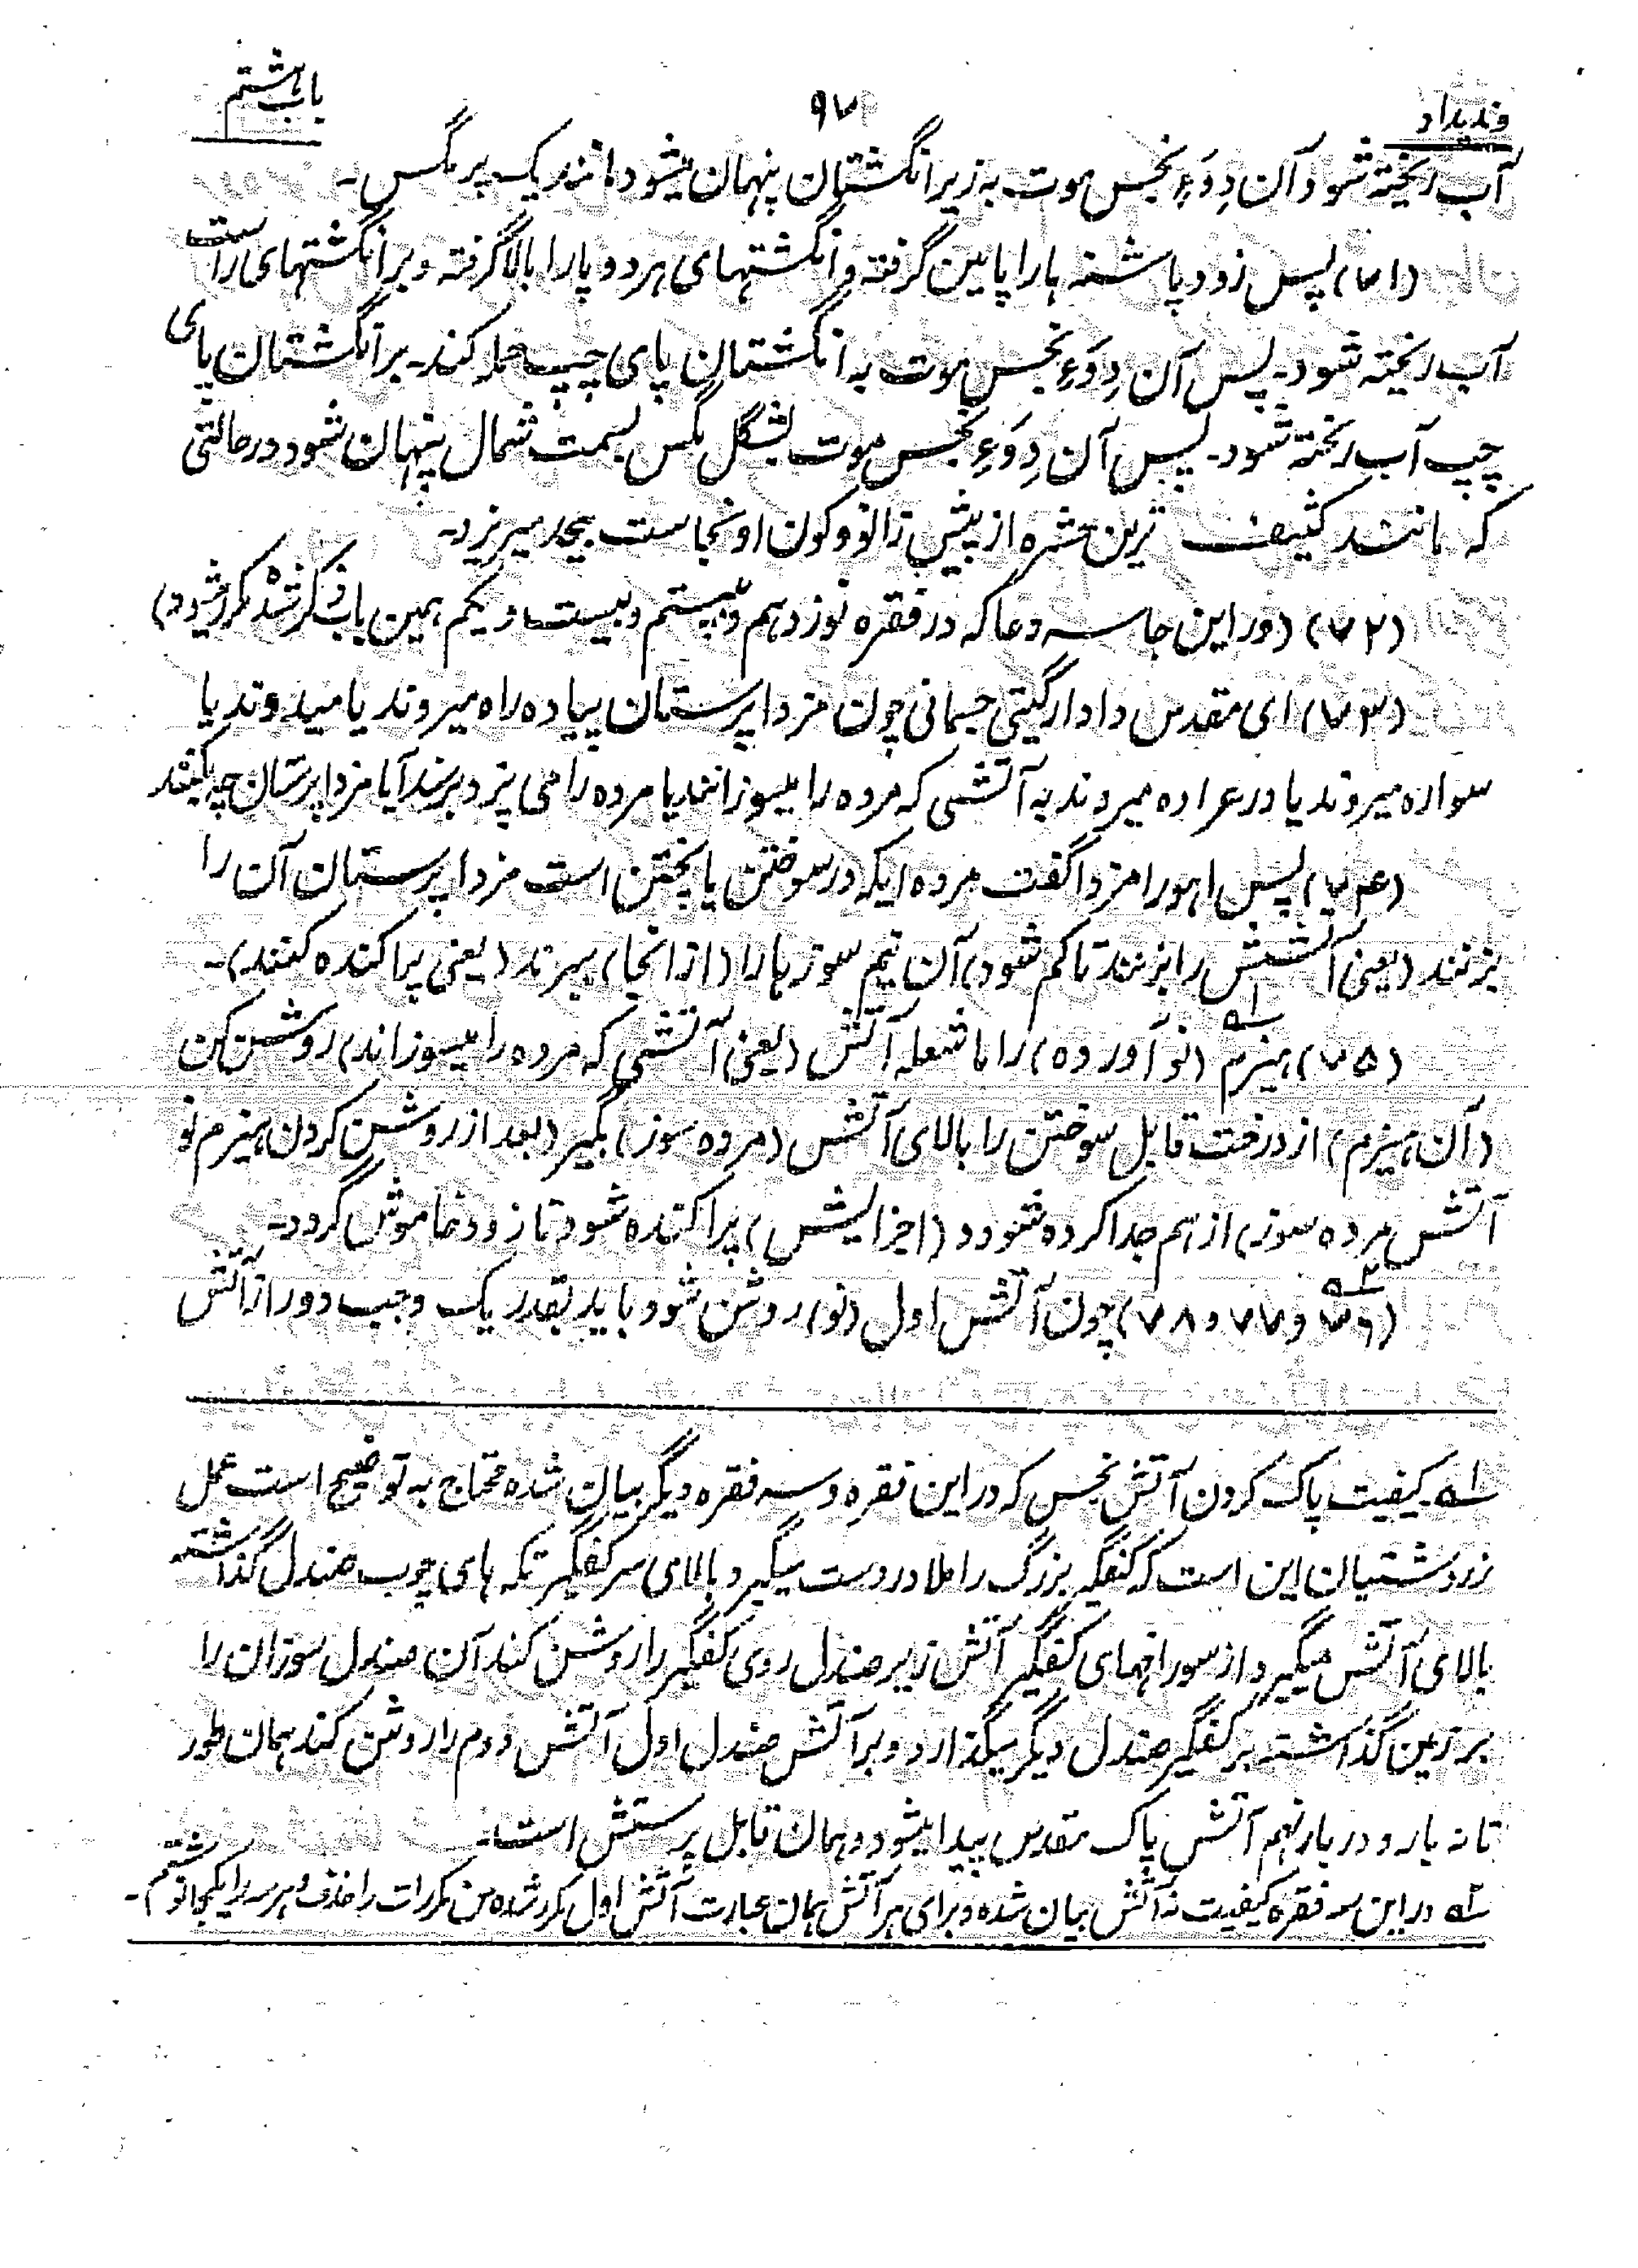 وندیداد
۹۷
باب هشتم
آب ریخته شود آن دِوَءِ نجس موت به زیر انگشتان پنهان میشود مانند یک پر مگس ـ
(۷۱) پس زود پاشنه ها را پایین گرفته و انگشتهای هر دو پا را بالا گرفته و بر انگشتهای راست
آب ریخته شود ـ پس آن دِوَءِ نجس موت به انگشتان پای چپ حمله کند ـ بر انگشتان پای
چپ آب ریخته شود ـ پس آن دِوَءِ نجس موت بشکل مگس بسمت شمال پنهان شود در حالتی
که مانند کثیف ترین حشره از پیش زانو و کون او نجاست بیحد میریزد ـ
(۷۲) (در این جا سه دعا که در فقره نوزدهم و بیستم و بیست و یکم همین باب ذکر شد مکرر میشود)
(۷۳) ای مقدس دادار گیتی جسمانی چون مزدا پرستان پیاده راه میروند یا میدوند یا
سواره میروند یا در عراده میروند به آتشی که مرده را میسوزانند یا مرده را می پزد برسند آیا مزدا پرستان چه بکنند
(۷۴) پس اهورا مزدا گفت مرده ایکه در سوختن یا پختن است مزدا پرستان آن را
بزنند (یعنی آتشش را بزنند تا کم شود) آن نیم سوزها را (از انجا) ببرند (یعنی پراکنده کنند) ـ
(۷۵) هیزم ۱ (نو آورده) را با شعله آتش (یعنی آتشی که مرده را میسوزاند) روشن کن
(آن هیزم) از درخت قابل سوختن را بالای آتش (مرده سوز) بگیر (بعد از روشن کردن هیزم نو
آتش مرده سوز) از هم جدا کرده شود و (اجزایش) پراکنده شود تا زود خاموش گردد ـ
(۷۶ ۲ و ۷۷ و ۷۸) چون آتش اول (نو) روشن شود باید بقدر یک وجب دور از آتش
۱ کیفیت پاک کردن آتش نجس که در این فقره و سه فقره دیگر بیان شده محتاج به توضیح است عمل
زردشتیان این است که کفگیر بزرگ را ملا در دست میگیرد بالای سر کفگیر تکه های چوب صندل گذاشته
بالای آتش میگیرد از سوراخهای کفگیر آتش زیر صندل روی کفگیر را روشن کند آن صندل سوزان را
بر زمین گذاشته بر کفگیر صندل دیگر میگذارد و بر آتش صندل اول آتش دوم را روشن کند همان طور
تا نه بار و در بار نهم آتش پاک مقدس پیدا میشود و همان قابل پرستش است ـ
۲ در این سه فقره کیفیت نه آتش بیان شده و برای هر آتش همان عبارت آتش اول مکرر شده من مکررات را حذف و هر سه را یکجا نوشتم ـ